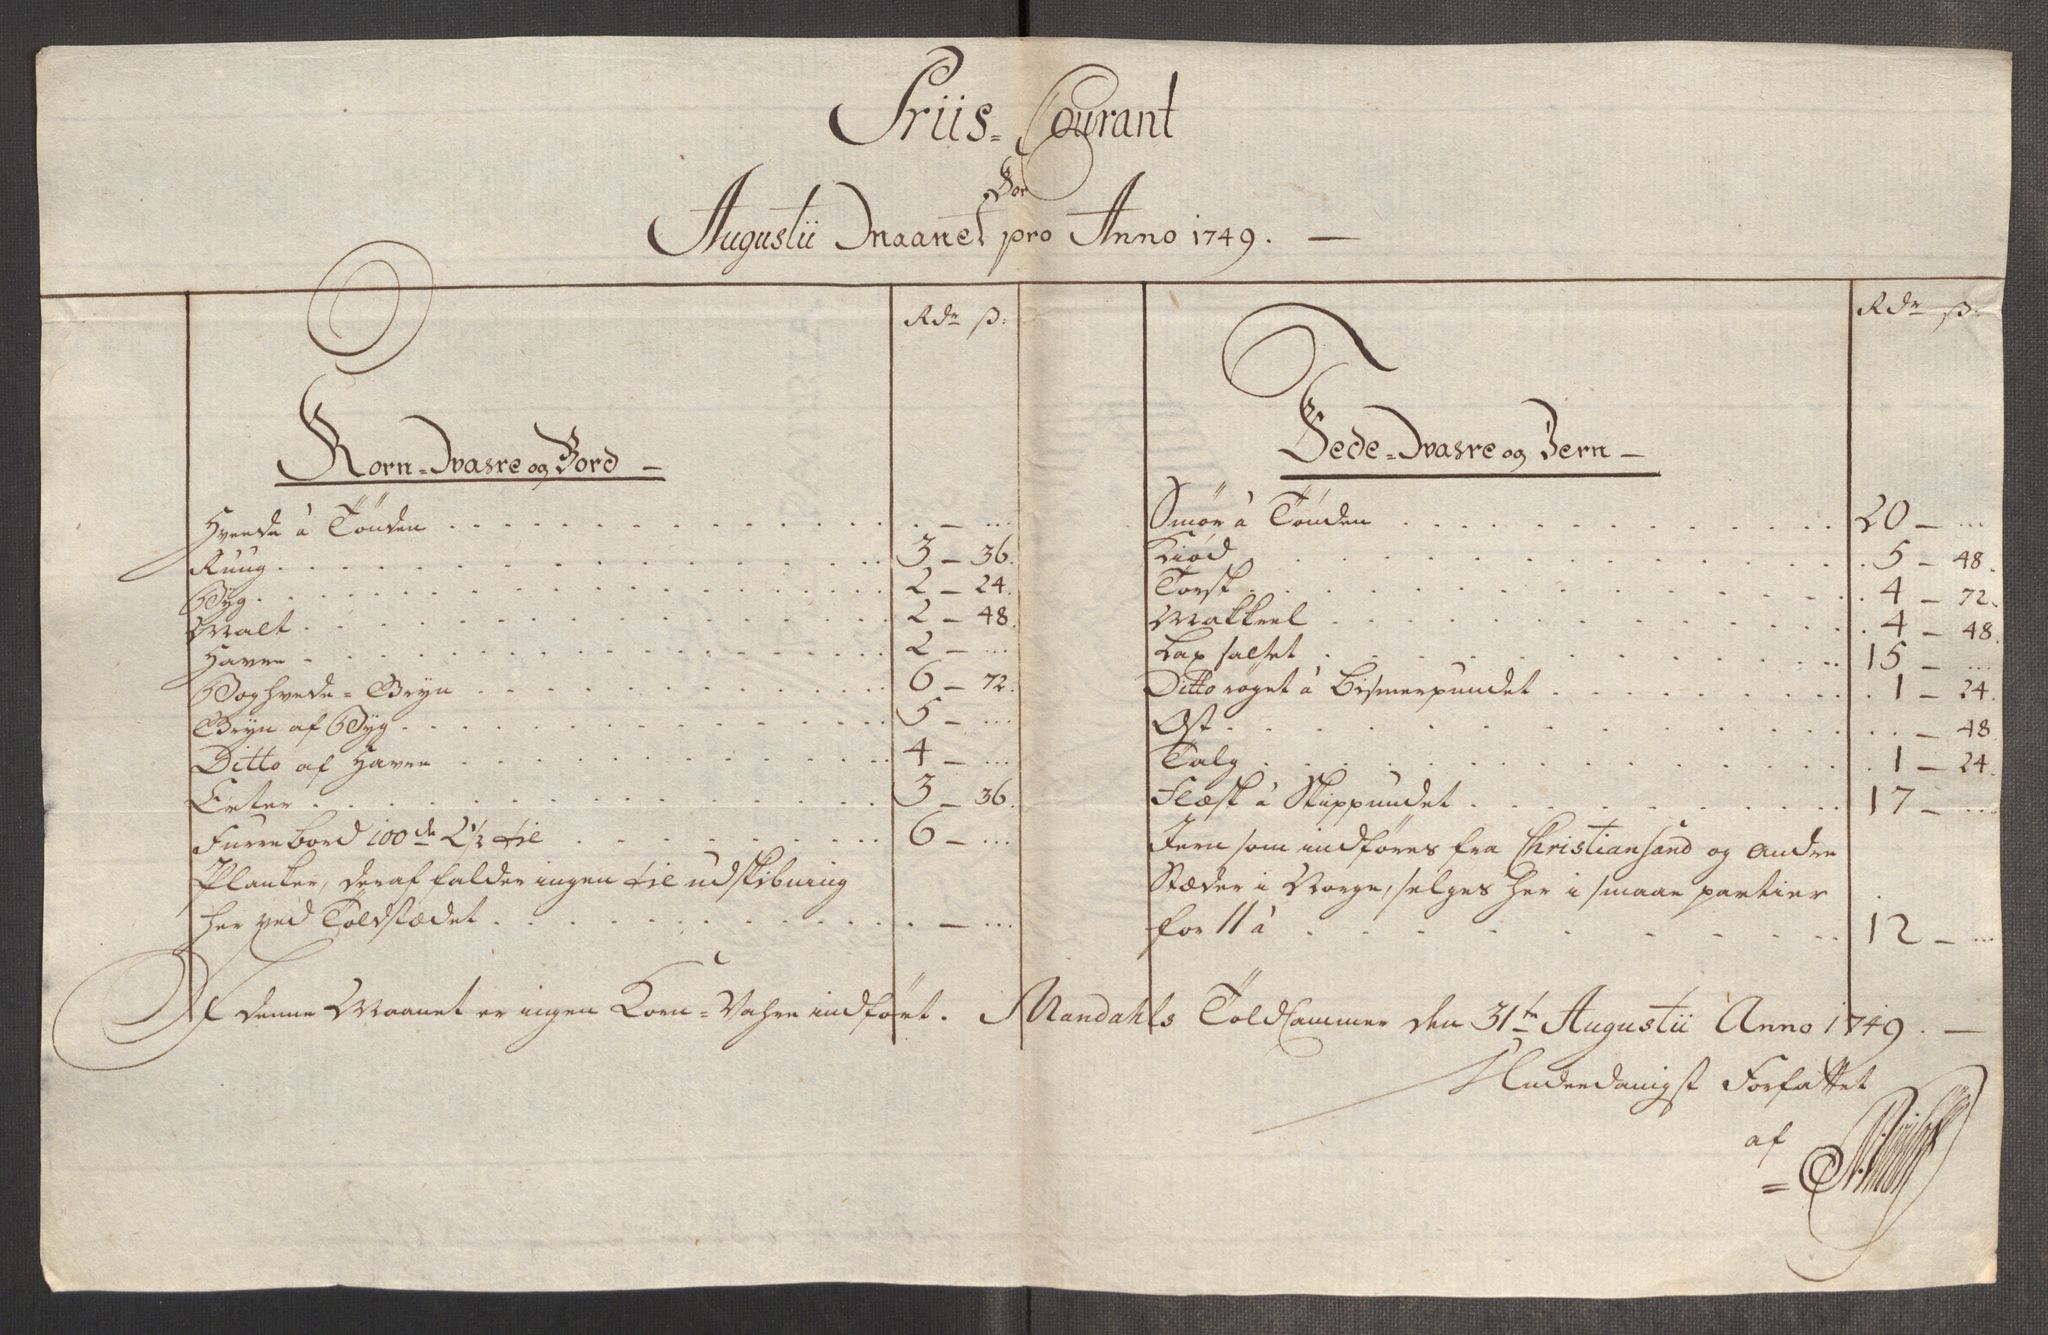 Priis-Courant
For
Augustii Maanet pro Anno 1749. —
Rdr ß:
Korn-Vasre og Bord —
Hvede á Tönden . . . — ...
Ruug . . . 3 — 36.
Byg . . . 2 — 24.
Malt . . . 2 — 48.
Havre . . . 2 — ...
Boghvede-Gryn . . . 6 — 72.
Gryn af Byg . . . 5 — ...
Ditto af Havre . . . 4 — ...
Erter . . . 3 — 36.
Furre bord 100de 2 1/2 til . . . 6 — ...
Planker, deraf falder ingen til udskibning
her ved Toldstædet . . . — ...
Rdr ß:
Fede-Vasre og Jern —
Smör á Tönden . . . 20 — ...
Kiød . . . 5 — 48.
Torsk . . . 4 — 72.
Makkrel . . . 4 — 48.
Lax saltet . . . 15 — ...
Ditto röget á Bismerpundet . . . 1 — 24.
Ost . . . — 48.
Talg . . . 1 — 24.
Flæsk á Skippundet . . . 17 — ...
Jern som indföres fra Christiansand og andre
Stæder i Norge, selges her i smaae partier
for 11 á . . . 12 — ...
I denne Maanet er ingen Korn-Vahre indfört. Mandahls Toldkammer den 31te Augustii Anno 1749. —
Underdanigst Forfattet
af